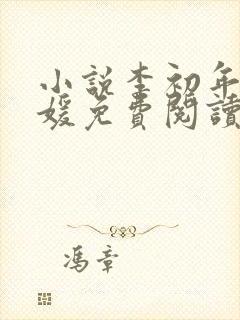 小說李初年
媛免費閱讀
馮章